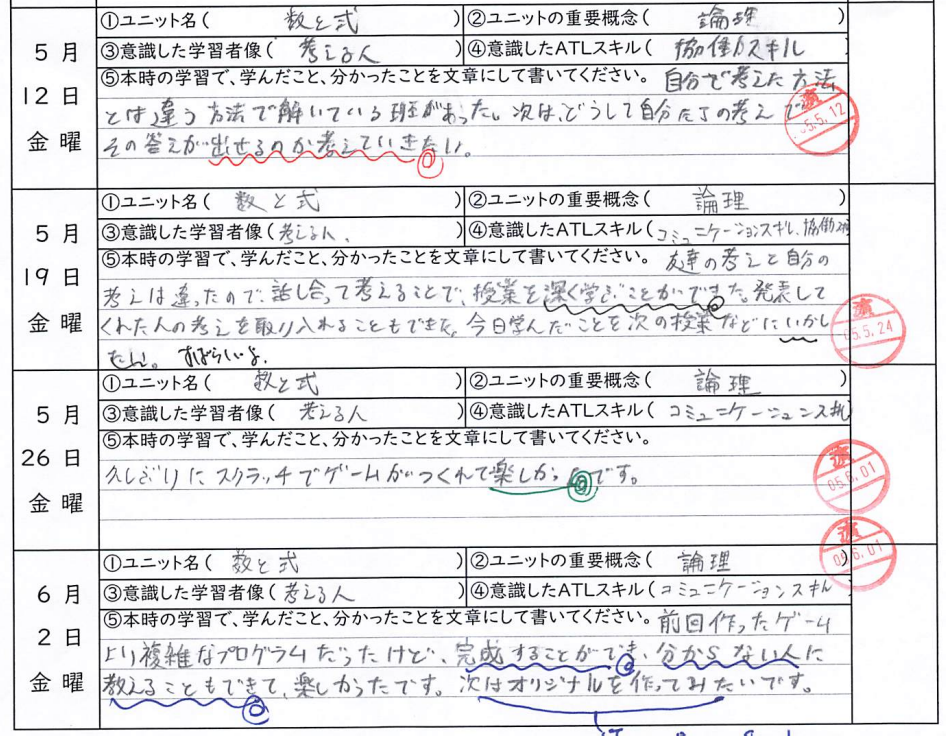 ①ユニット名( 数と式 ) ②ユニットの重要概念( 論理 )
5 月 ③意識した学習者像( 考える人 ) ④意識したATLスキル( 協働スキル )
⑤本時の学習で、学んだこと、分かったことを文章にして書いてください。 自分で考えた方法
12 日 とは違う方法で解いている班があった。次は、どうして自分たちの考えで
05.5.12
金 曜 その答えが出せるのか考えていきたい。
①ユニット名( 数と式 ) ②ユニットの重要概念( 論理 )
5 月 ③意識した学習者像( 考える人、 ④意識したATLスキル( コミュニケーションスキル、協働
⑤本時の学習で、学んだこと、分かったことを文章にして書いてください。 友達の考えと自分の
19 日 考えは違ったので、話し合って考えることで、授業を深く学ぶことができた。発表して
金 曜 くれた人の考えを取り入れることもできた。今日学んだことを次の授業などにいかし
05.5.24
たい。 すばらしいよ。
①ユニット名( 数と式 ) ②ユニットの重要概念( 論理 )
5 月 ③意識した学習者像( 考える人 ) ④意識したATLスキル( コミュニケーションスキル
⑤本時の学習で、学んだこと、分かったことを文章にして書いてください。
26 日 久しぶりにスクラッチでゲームがつくれて楽しかったです。
05.6.01
金 曜
①ユニット名( 数と式 ) ②ユニットの重要概念( 論理 )
05.6.01
6 月 ③意識した学習者像( 考える人 ) ④意識したATLスキル( コミュニケーションスキル
⑤本時の学習で、学んだこと、分かったことを文章にして書いてください。 前回作ったゲーム
2 日 より複雑なプログラムだったけど、完成することができ、分からない人に
金 曜 教えることもできて、楽しかったです。次はオリジナルを作ってみたいです。